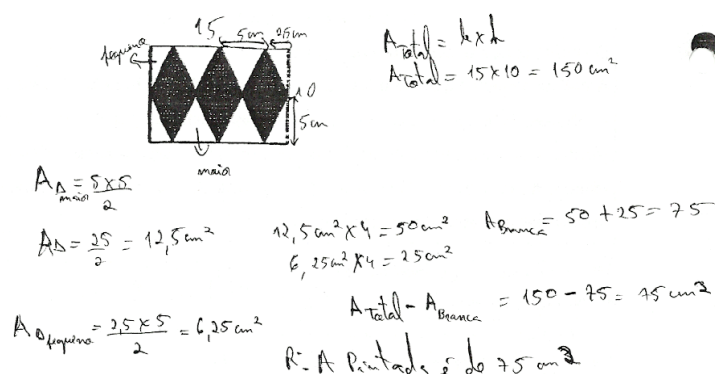 15
5cm
2,5cm
pequeno
10
5cm
maior
A Total = b x h
A Total = 15 x 10 = 150 cm²
A Δ maior = 5 x 5 / 2
A Δ = 25 / 2 = 12,5 cm²
12,5 cm² x 4 = 50 cm²
6,25 cm² x 4 = 25 cm²
A Branca = 50 + 25 = 75
A Δ pequeno = 2,5 x 5 / 2 = 6,25 cm²
A Total - A Branca = 150 - 75 = 75 cm²
R: A Pintada é de 75 cm²